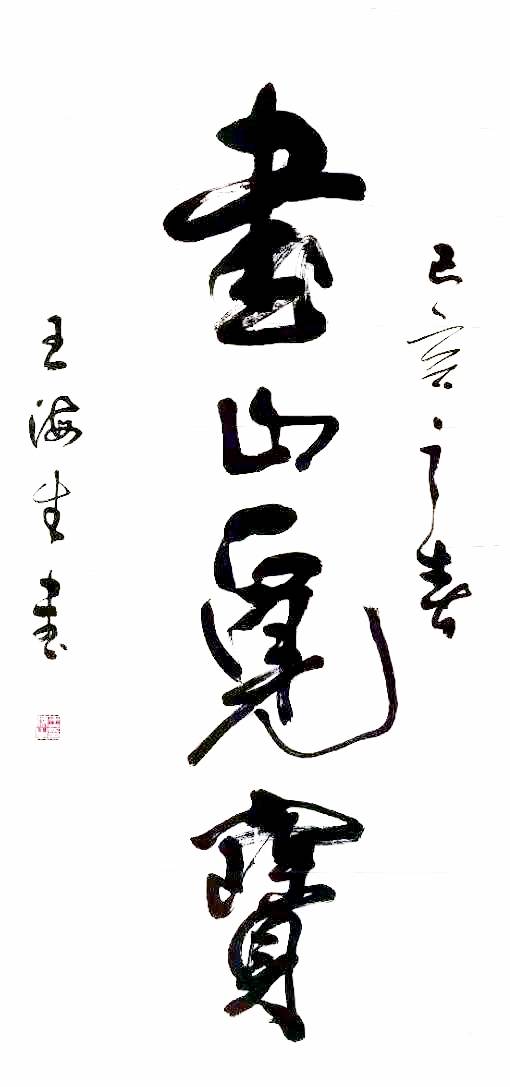 己亥之春
書山覓寶
王海生書